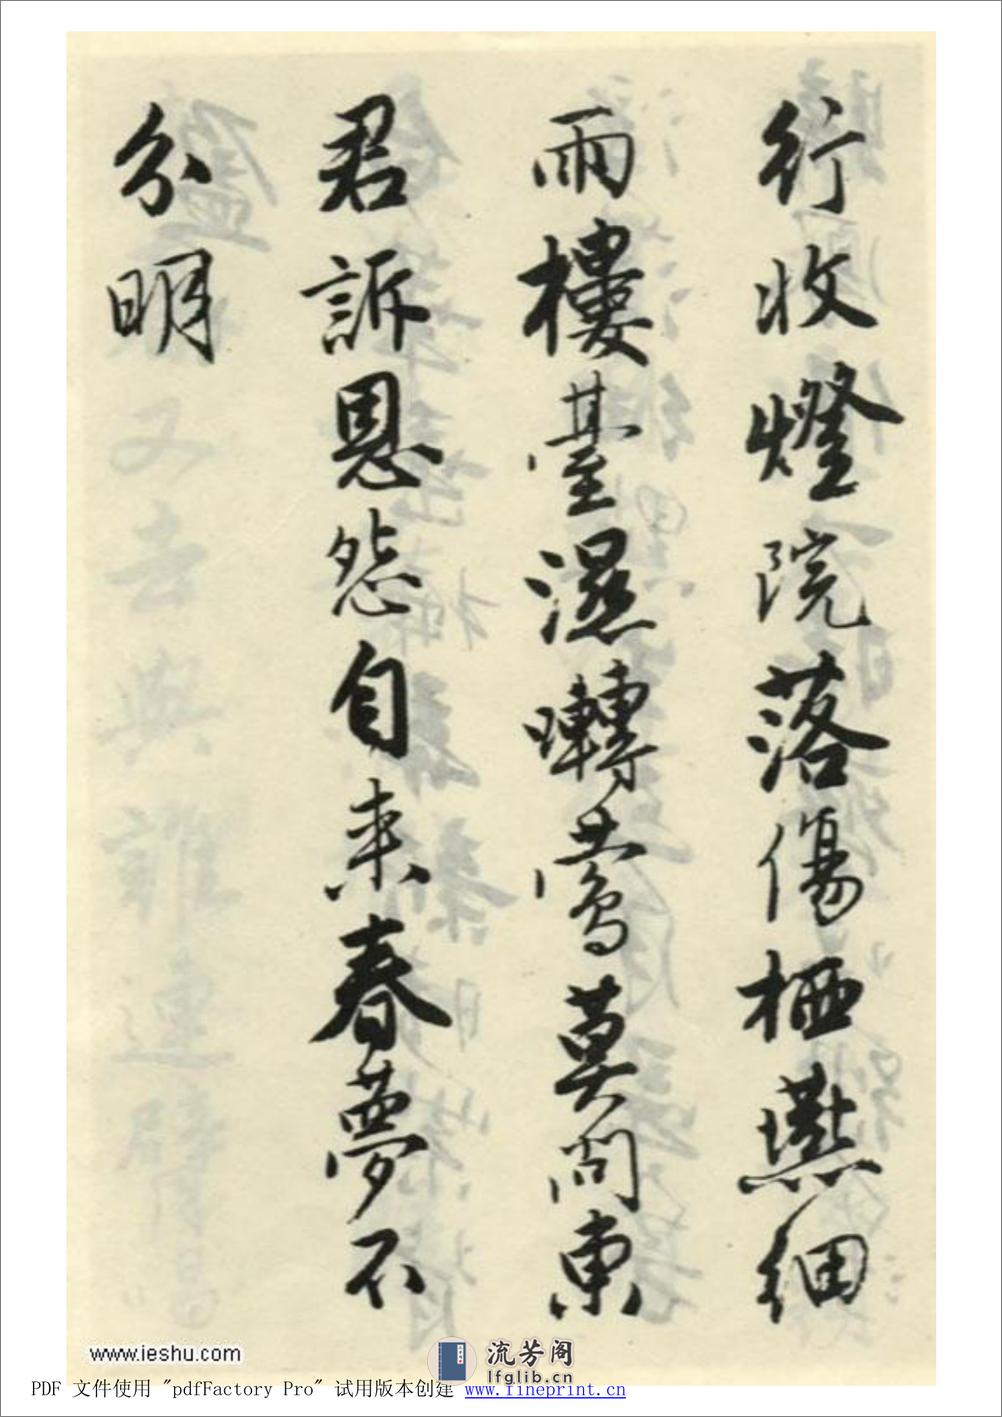 行收燈院落傷栖燕細
雨樓臺濕囀鶯莫問東
君訴恩怨自来春夢不
分明
www.ieshu.com
流芳阁
lfglib.cn
PDF 文件使用 "pdfFactory Pro" 试用版本创建 www.fineprint.cn